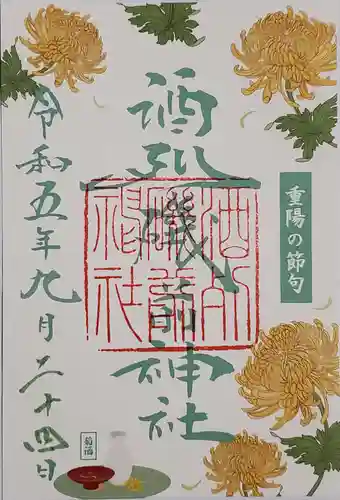 重陽の節句
酒列磯前神社
酒列
磯前
神社
令和五年九月二十四日
菊酒